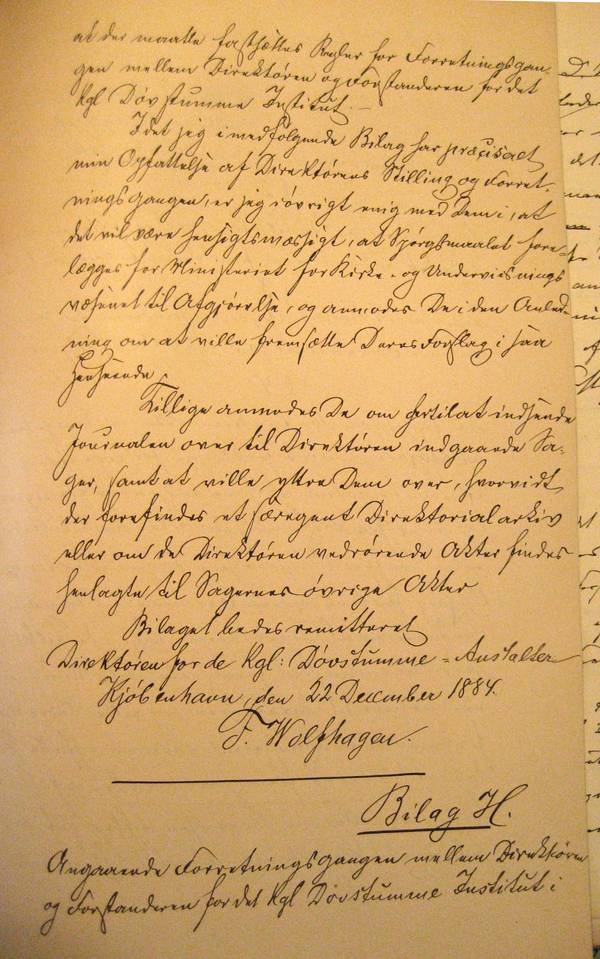 at der maatte fastsættes Regler for Forretningsgan-
gen mellem Direktøren og Forstanderen for det
Kgl Døvstumme Institut. —
Idet jeg i medfølgende Bilag har præciseret
min Opfattelse af Direktørens Stilling og Forret-
ningsgangen, er jeg iøvrigt enig med Dem i, at
det vil være hensigtsmæssigt, at Spørgsmaalet fore-
lægges for Ministeriet for Kirke- og Undervisnings
væsenet til Afgjørelse, og anmodes De i den Anled-
ning om at ville fremsætte Deres Forslag i saa
Henseende.
Tillige anmodes De om hertil at indsende
Journalen over til Direktøren indgaaede Sa-
ger, samt at ville yttre Dem over, hvorvidt
der forefindes et særegent Direktorialarkiv
eller om de Direktøren vedrørende Akter findes
henlagte til Sagernes øvrige Akter
Bilaget bedes remitteret
Direktøren for de Kgl: Døvstumme-Anstalter
Kjøbenhavn, den 22 December 1884.
F. Wolfhagen.
Bilag H.
Angaaende Forretningsgangen mellem Direktøren
og Forstanderen for det Kgl Døvstumme Institut i